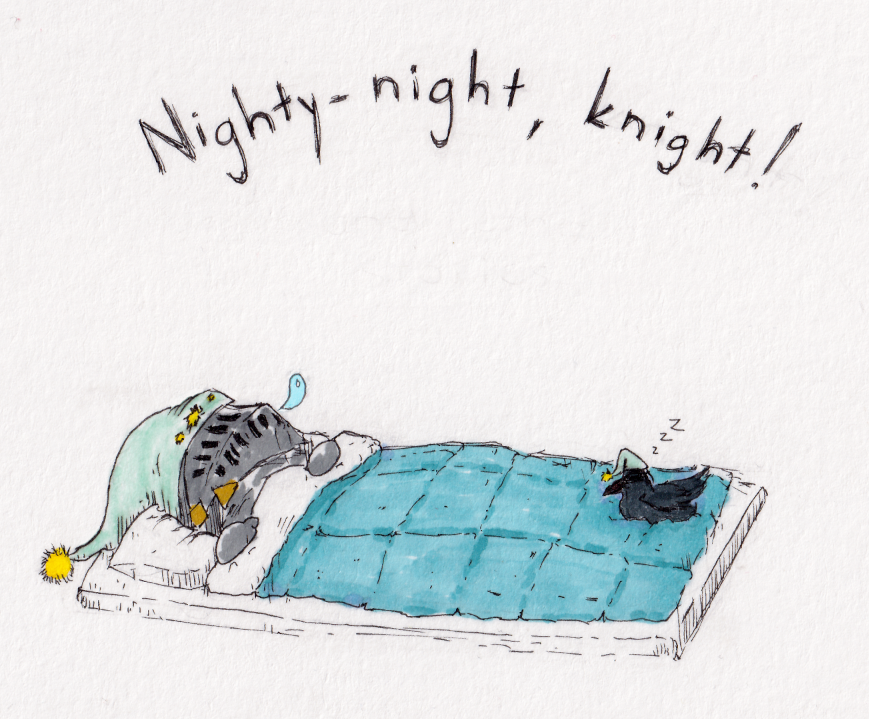 Nighty-night, knight!
z z z